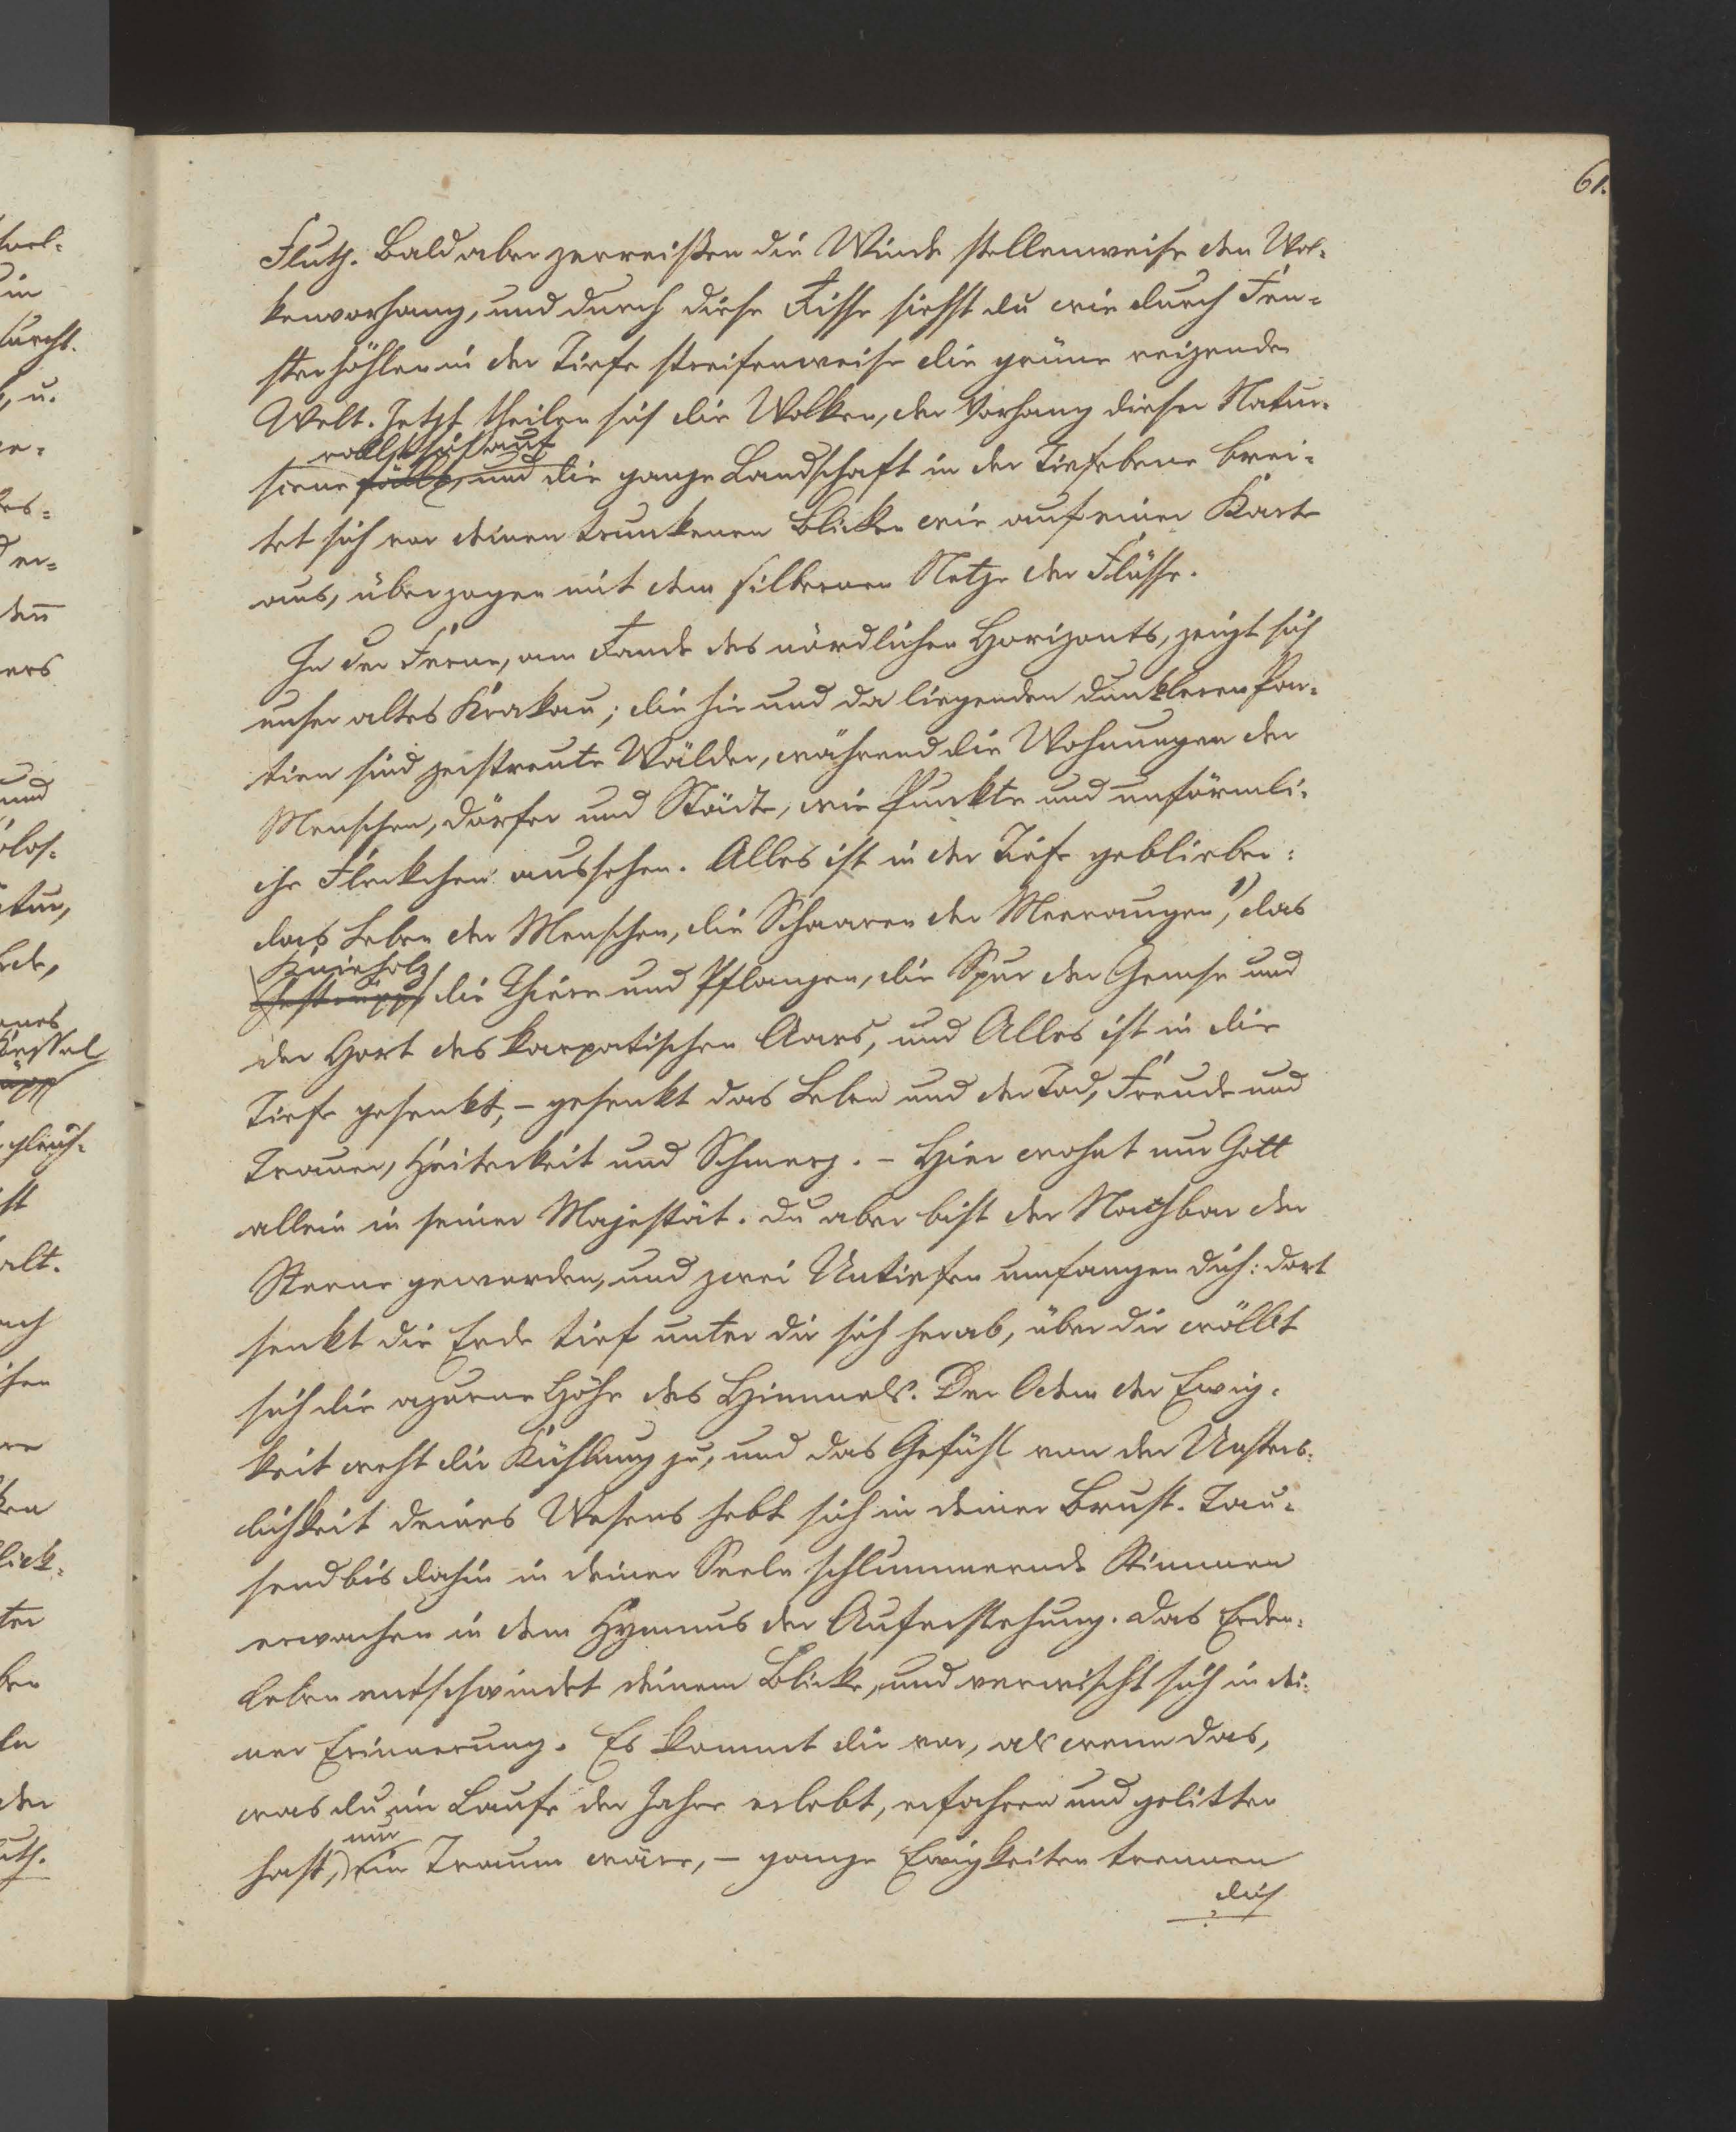 61.
Fluth. Bald aber zerreißen die Winde stellenweise den Wol-
kenvorhang, und durch diese Risse siehst du wie durch Fen-
sterhöhlen in der Tiefe streifenweise die grüne reizende
Welt. Jetzt theilen sich die Wolken, der Vorhang dieser Natur-
rollt sich auf
scene fällt, und die ganze Landschaft in der Tiefebene brei-
tet sich vor deinen trunkenen Blicken wie auf einer Karte
aus, überzogen mit dem silbernen Netze der Flüsse.
In der Ferne, am Rande des nördlichen Horizonts, zeigt sich
unser altes Krakau; die hie und da liegenden dunkleren Par-
tien sind zerstreute Wälder, während die Wohnungen der
Menschen, Dörfer und Städte, wie Punkte und unförmli-
che Fleckchen aussehen. Alles ist in der Tiefe geblieben:
das Leben der Menschen, die Schaaren der Meeraugen 1), das
Knieholz
Gestrüpp, die Thiere und Pflanzen, die Spur der Gemse und
der Hort des karpatischen Aars, und Alles ist in die
Tiefe gesenkt, – gesenkt das Leben und der Tod, Freude und
Trauer, Heiterkeit und Schmerz. – Hier wohnt nur Gott
allein in seiner Majestät. Du aber bist der Nachbar der
Sterne geworden, und zwei Untiefen umfangen dich: dort
senkt die Erde tief unter dir sich herab, über dir wölbt
sich die azurne Höhe des Himmels. Der Odem der Ewig-
keit weht dir Kühlung zu, und das Gefühl von der Unsterb-
lichkeit deines Wesens hebt sich in deiner Brust. Tau-
send bis dahin in deiner Seele schlummernde Stimmen
erwachen in dem Hymnus der Auferstehung. Das Erden-
leben entschwindet deinem Blicke, und verwischt sich in dei-
ner Erinnerung. Es kommt dir vor, als wenn das,
was du im Laufe der Jahre erlebt, erfahren und gelitten
nur
hast, ein Traum wäre, – ganze Ewigkeiten trennen
dich